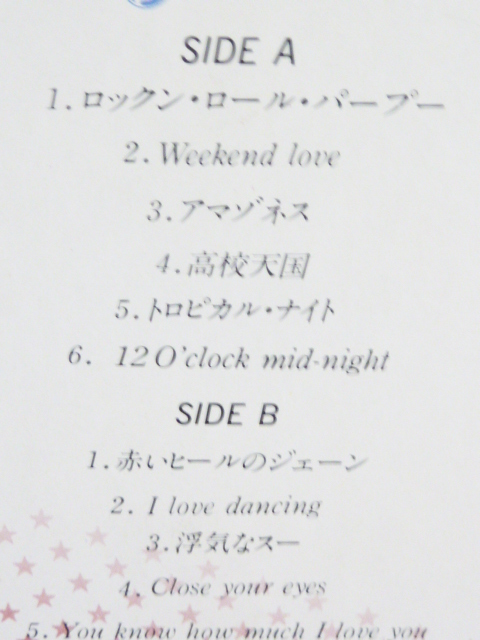 SIDE A
1.ロックン・ロール・パープー
2.Weekend love
3.アマゾネス
4.高校天国
5.トロピカル・ナイト
6. 12 O'clock mid-night
SIDE B
1.赤いヒールのジェーン
2. I love dancing
3.浮気なスー
4. Close your eyes
5. You know how much I love you